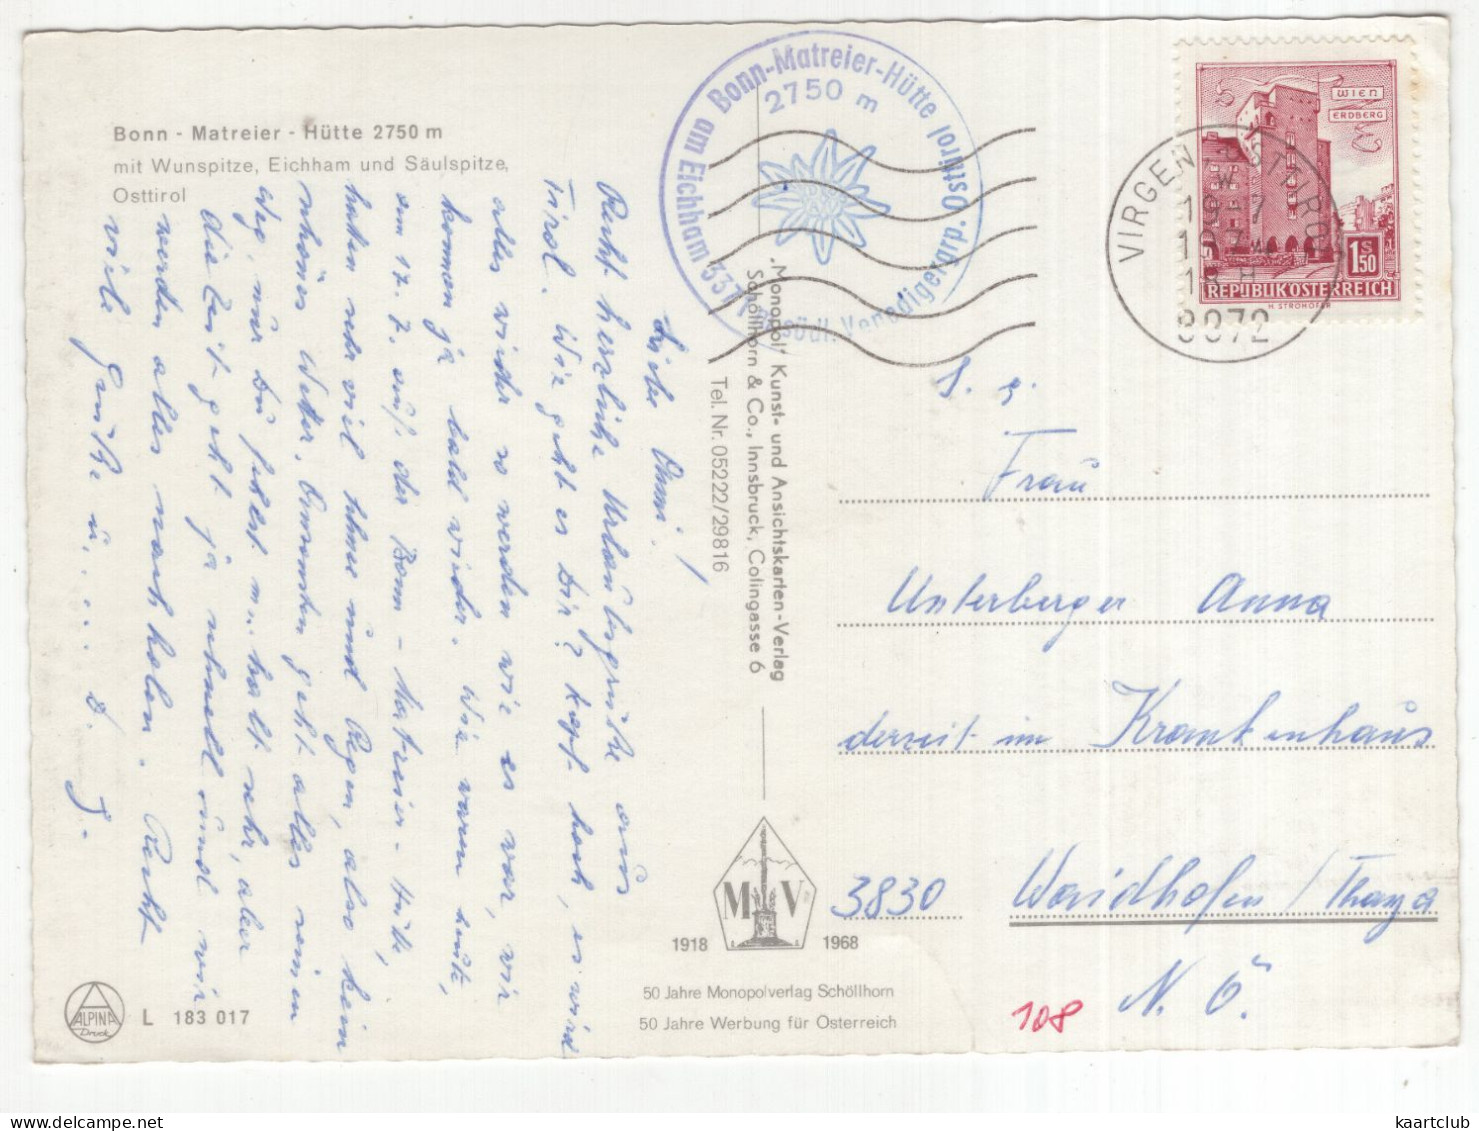 Bonn - Matreier - Hütte 2750 m
mit Wunspitze, Eichham und Säulspitze,
Osttirol
Bonn-Matreier-Hütte Osttirol
2750 m
am Eichham 3371 m südl. Venedigergrp.
WIEN
ERDBERG
1 S 50
REPUBLIK ÖSTERREICH
H. STROHOFER
VIRGEN, OSTTIROL
9972
Liebe Omi!
Recht herzliche Urlaubsgrüße aus
Tirol. Wie geht es Dir? Kopf hoch, es wird
alles wieder so werden wie es war, wir
kommen ja bald wieder. Wir waren heute,
am 17. 7. auf der Bonn - Matreier - Hütte,
haben sehr viel Schnee und Regen, also kein
schönes Wetter. Ansonsten geht alles seinen
Weg, nur Du fehlst uns halt sehr, aber
die Zeit geht ja schnell und wir
werden alles nachholen. Recht
viele Grüße u. . . . .
„Monopol“ Kunst- und Ansichtskarten-Verlag
Schöllhorn & Co., Innsbruck, Colingasse 6
Tel. Nr. 05222/29816
Frau
Unterberger Anna
derzeit im Krankenhaus
3830 Waidhofen / Thaya
N. Ö.
108
M V
1918 1968
50 Jahre Monopolverlag Schöllhorn
50 Jahre Werbung für Österreich
ALPINA
Druck
L 183 017
kaartclub